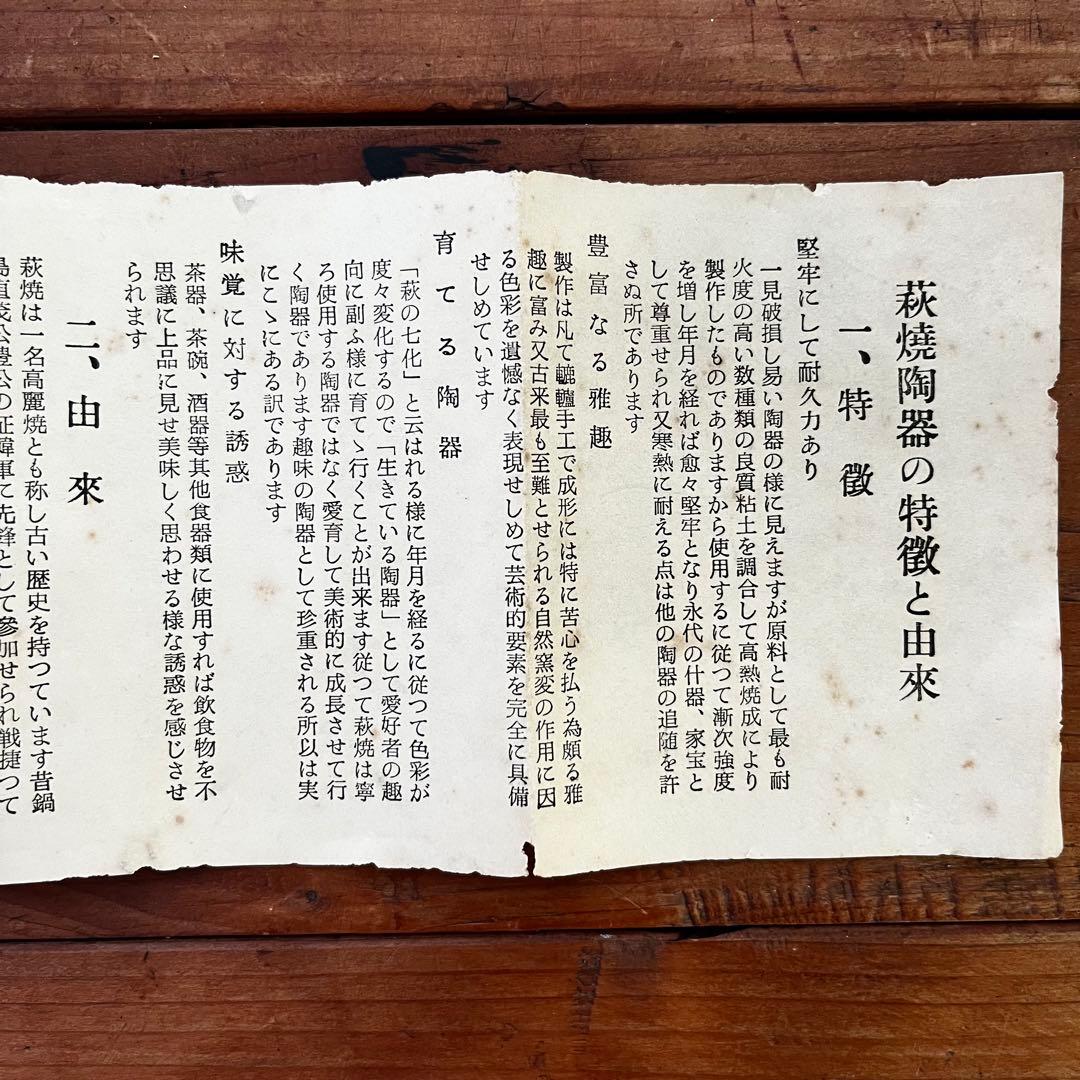 萩燒陶器の特徴と由來
一、特徴
堅牢にして耐久力あり
一見破損し易い陶器の様に見えますが原料として最も耐
火度の高い数種類の良質粘土を調合して高熱焼成により
製作したものでありますから使用するに従つて漸次強度
を増し年月を経れば愈々堅牢となり永代の什器、家宝と
して尊重せられ又寒熱に耐える点は他の陶器の追随を許
さぬ所であります
豊富なる雅趣
製作は凡て轆轤手工で成形には特に苦心を払う為頗る雅
趣に富み又古来最も至難とせられる自然窯変の作用に因
る色彩を遺憾なく表現せしめて芸術的要素を完全に具備
せしめています
育てる陶器
「萩の七化」と云はれる様に年月を経るに従つて色彩が
度々変化するので「生きている陶器」として愛好者の趣
向に副ふ様に育てゝ行くことが出来ます従つて萩焼は寧
ろ使用する陶器ではなく愛育して美術的に成長させて行
く陶器であります趣味の陶器として珍重される所以は実
にこゝにある訳であります
味覚に対する誘惑
茶器、茶碗、酒器等其他食器類に使用すれば飲食物を不
思議に上品に見せ美味しく思わせる様な誘惑を感じさせ
られます
二、由來
萩焼は一名高麗焼とも称し古い歴史を持つています昔鍋
島直茂公豊公の征韓軍に先鋒として參加せられ戦捷つて